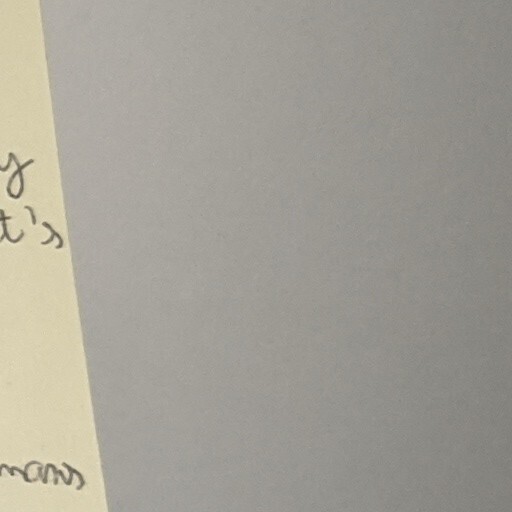 y
t's
mans